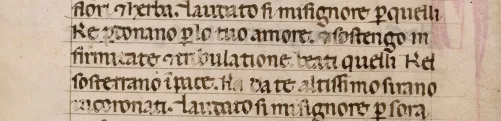 flori ⁊ herba. Laudato si misignore ꝑquelli
Ke ꝑdonano ꝑ lo tuo amore. ⁊ sostengo in
firmitate ⁊ tribulatione. beati quelli Kel
sosterrano ĩ pace. Ka da te altissimo sirano
incoronati. Laudato si misignore ꝑ sora